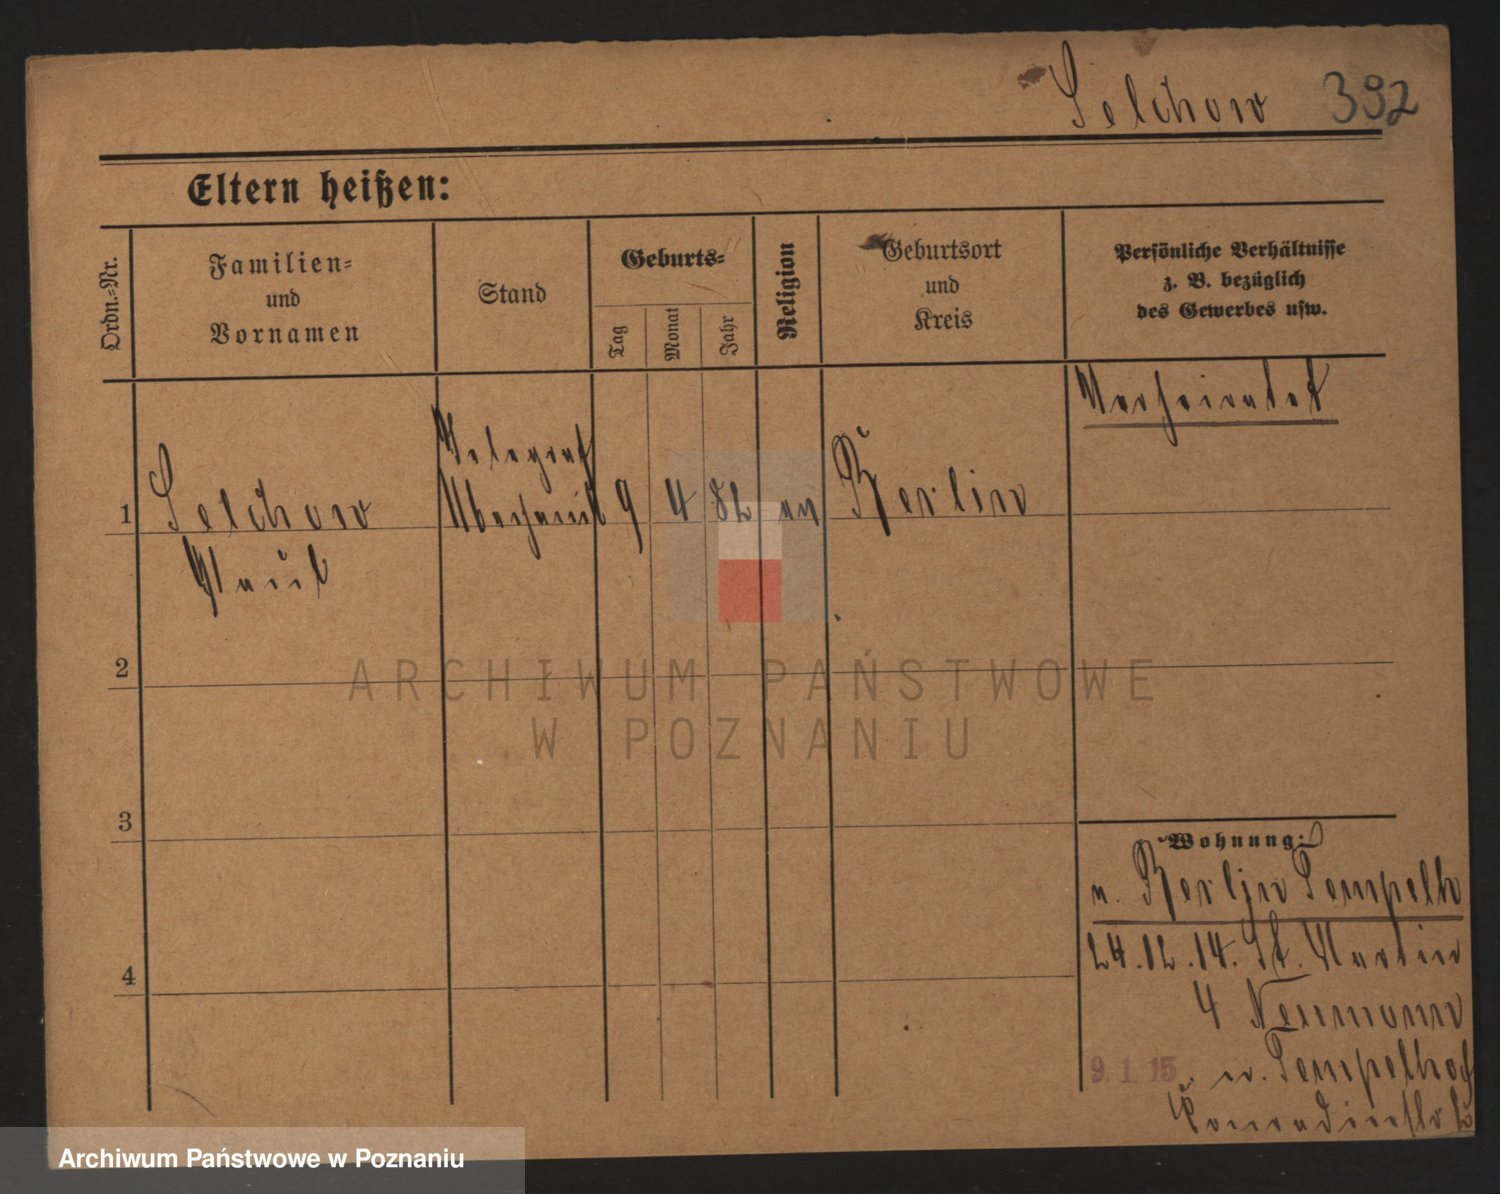 Selchow 392
Eltern heißen:
Ordn.-Nr.
Familien-
und
Vornamen
Stand
Geburts-
Tag
Monat
Jahr
Religion
Geburtsort
und
Kreis
Persönliche Verhältnisse
z. B. bezüglich
des Gewerbes usw.
Verheiratet
1 Selchow
Paul
Telegraf
Mechanik
9 4 82 ev
Berlin
2
3
4
Wohnung:
v. Berlin Tempelh
24.12.14. St. Martin
4 Neumann
9. 1. 15. n. Tempelhof
ARCHIWUM PAŃSTWOWE
W POZNANIU
Archiwum Państwowe w Poznaniu